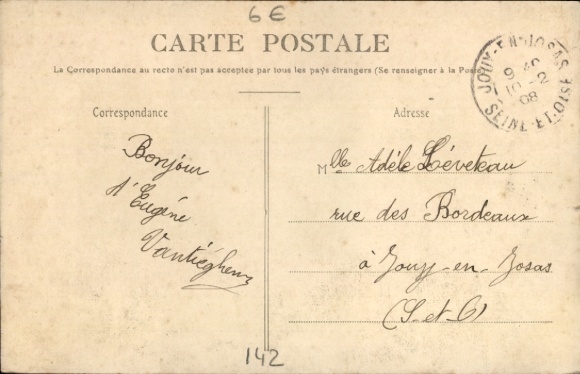 6€
CARTE POSTALE
La Correspondance au recto n'est pas acceptée par tous les pays étrangers (Se renseigner à la Poste)
JOUY-EN-JOSAS
9 40
10-2
08
SEINE-ET-OISE
Correspondance
Adresse
Bonjour
d'Eugène
Vantieghem
Mlle Adèle Léveteau
rue des Bordeaux
à Jouy-en-Josas
(S-et-O)
142